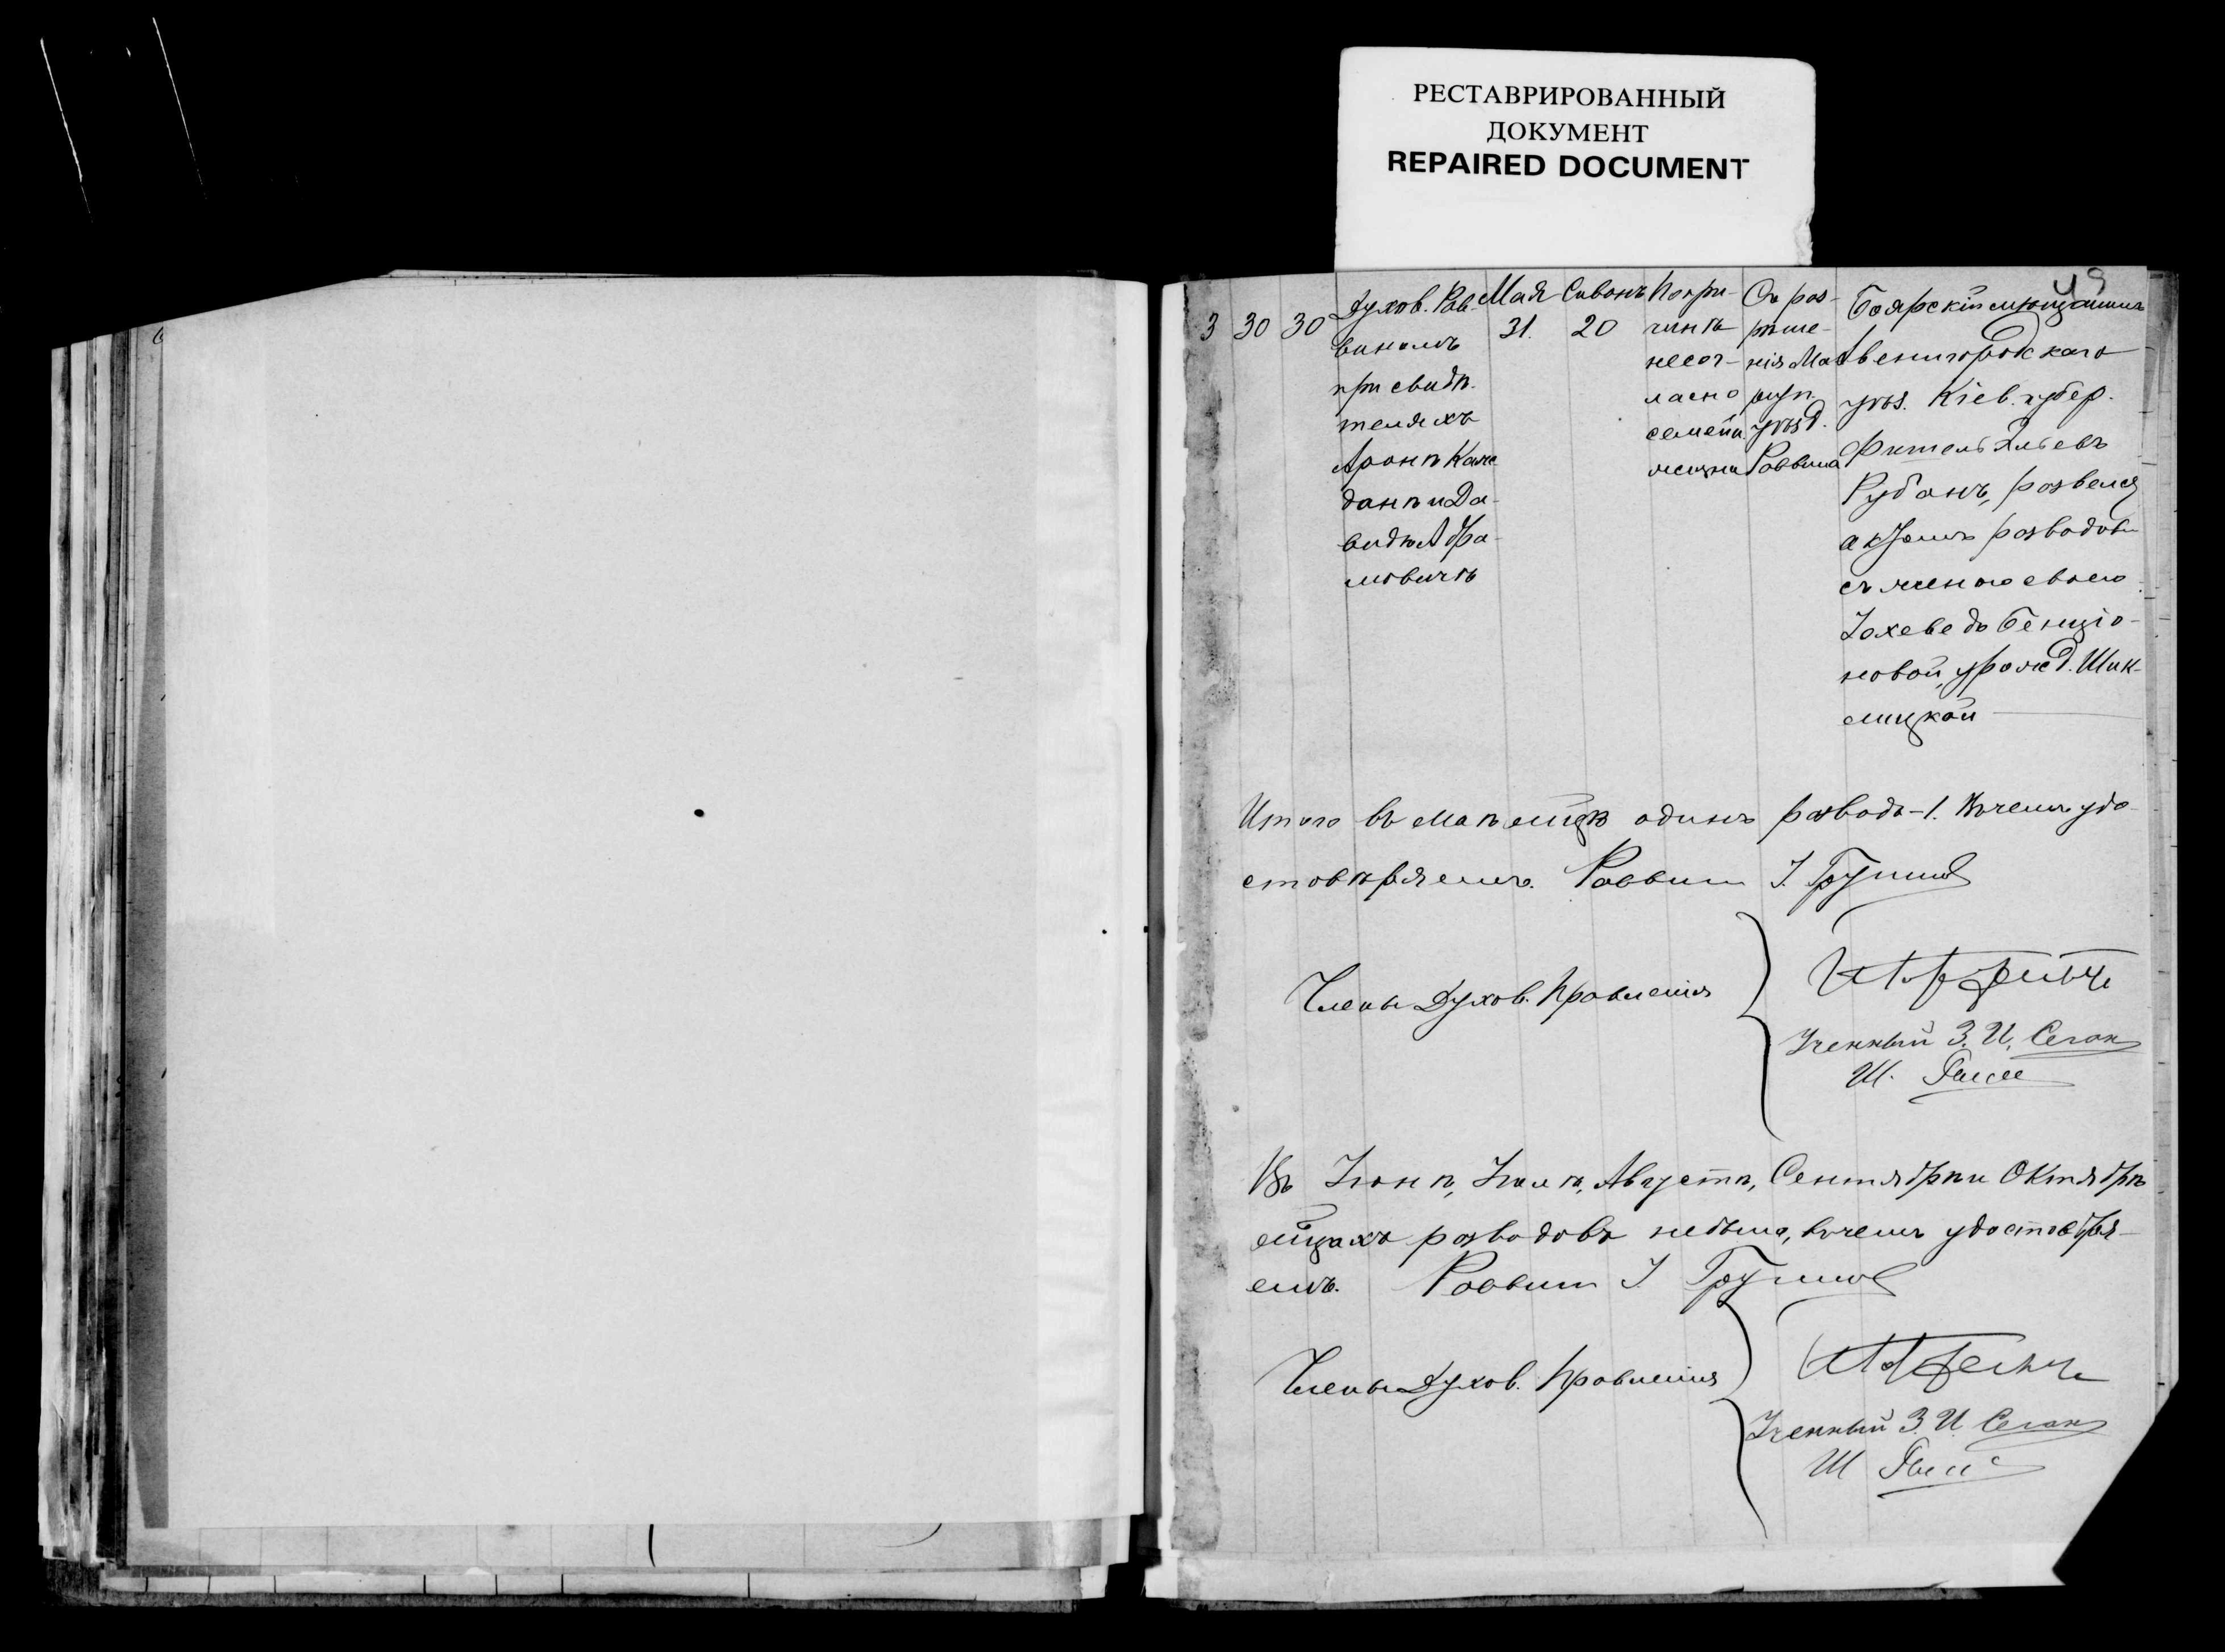 РЕСТАВРИРОВАННЫЙ
ДОКУМЕНТ
REPAIRED DOCUMENT
49
3 30 30
Духов. Рав-
виномъ
при свидѣ-
теляхъ
Аронѣ
и Да-
видѣ Абра-
мовичѣ
Мая
31.
Сивонъ
20
По при-
чинѣ
несог-
ласно
семейн.
жизни
Съ раз-
рѣше-
нія
уѣзд.
Раввина
Боярскій мѣщанинъ
Звенигородскаго
уѣз. Кіев. губер.
Фитель Эльевъ
Рубанъ, развелся
актомъ разводов.
съ женою своею
Іохеведъ Бенціо-
новой, урожд. Шик-
мицкой
Итого въ Маѣ мцѣ одинъ разводъ-1. Въ чемъ удо-
стовѣряемъ. Раввинъ І.
Члены Духов. Правленія
Ученный З. И. Сеган
Ш.
Въ Іюнѣ, Іюлѣ, Августѣ, Сентябрѣ и Октябрѣ
мцахъ разводовъ небыло, въ чемъ удостовѣря-
емъ. Раввинъ І.
Члены Духов. Правленія
Ученный З. И. Сеган
Ш